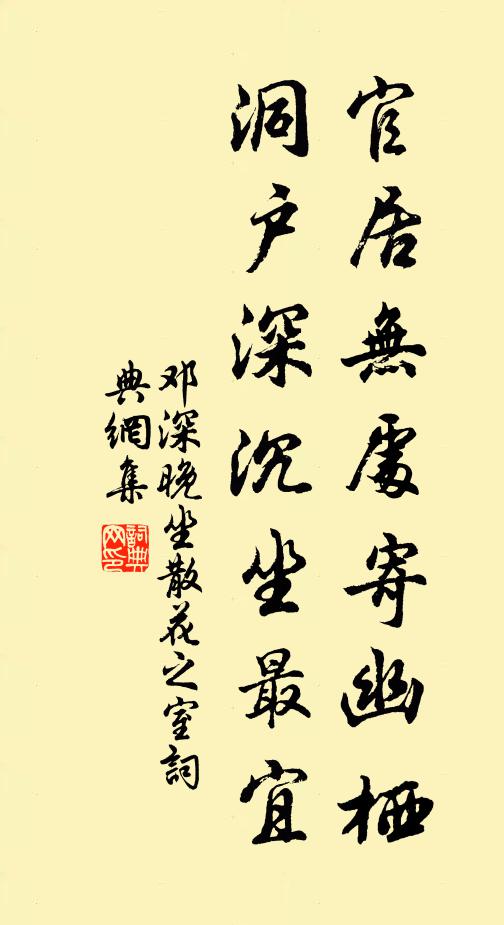 官居無處寄幽栖
洞户深沉坐最宜
邓深晚坐散花之室詞
典網集
詞典
网印